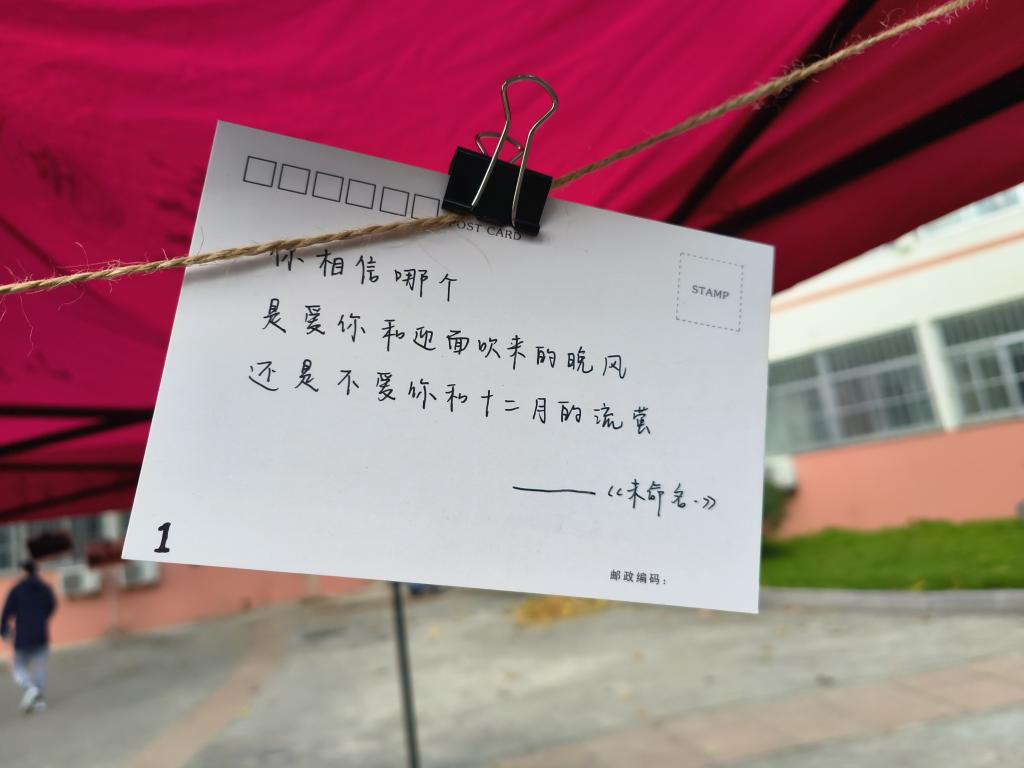 POST CARD
STAMP
你相信哪个
是爱你和迎面吹来的晚风
还是不爱你和十二月的流萤
——《未命名.》
1
邮政编码：